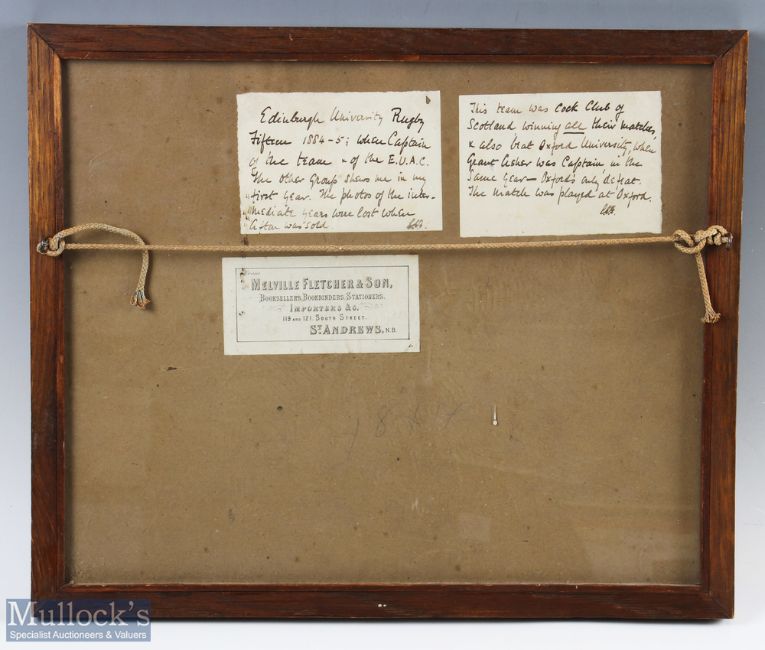 Edinburgh University Rugby
Fifteen 1884-5; when Captain
of the team & of the E.U.A.C.
The other Group shews me in my
first year. The photos of the inter-
mediate years were lost when
was sold.
This team was Cock Club of
Scotland winning all their matches,
& also beat Oxford University, when
Grant Asher was Captain, in the
same year — Oxford's only defeat.
The match was played at Oxford.
MELVILLE FLETCHER & SON,
BOOKSELLERS, BOOKBINDERS, STATIONERS,
IMPORTERS &C.
119 AND 121, SOUTH STREET,
ST ANDREWS, N.B.
Mullock's
Specialist Auctioneers & Valuers